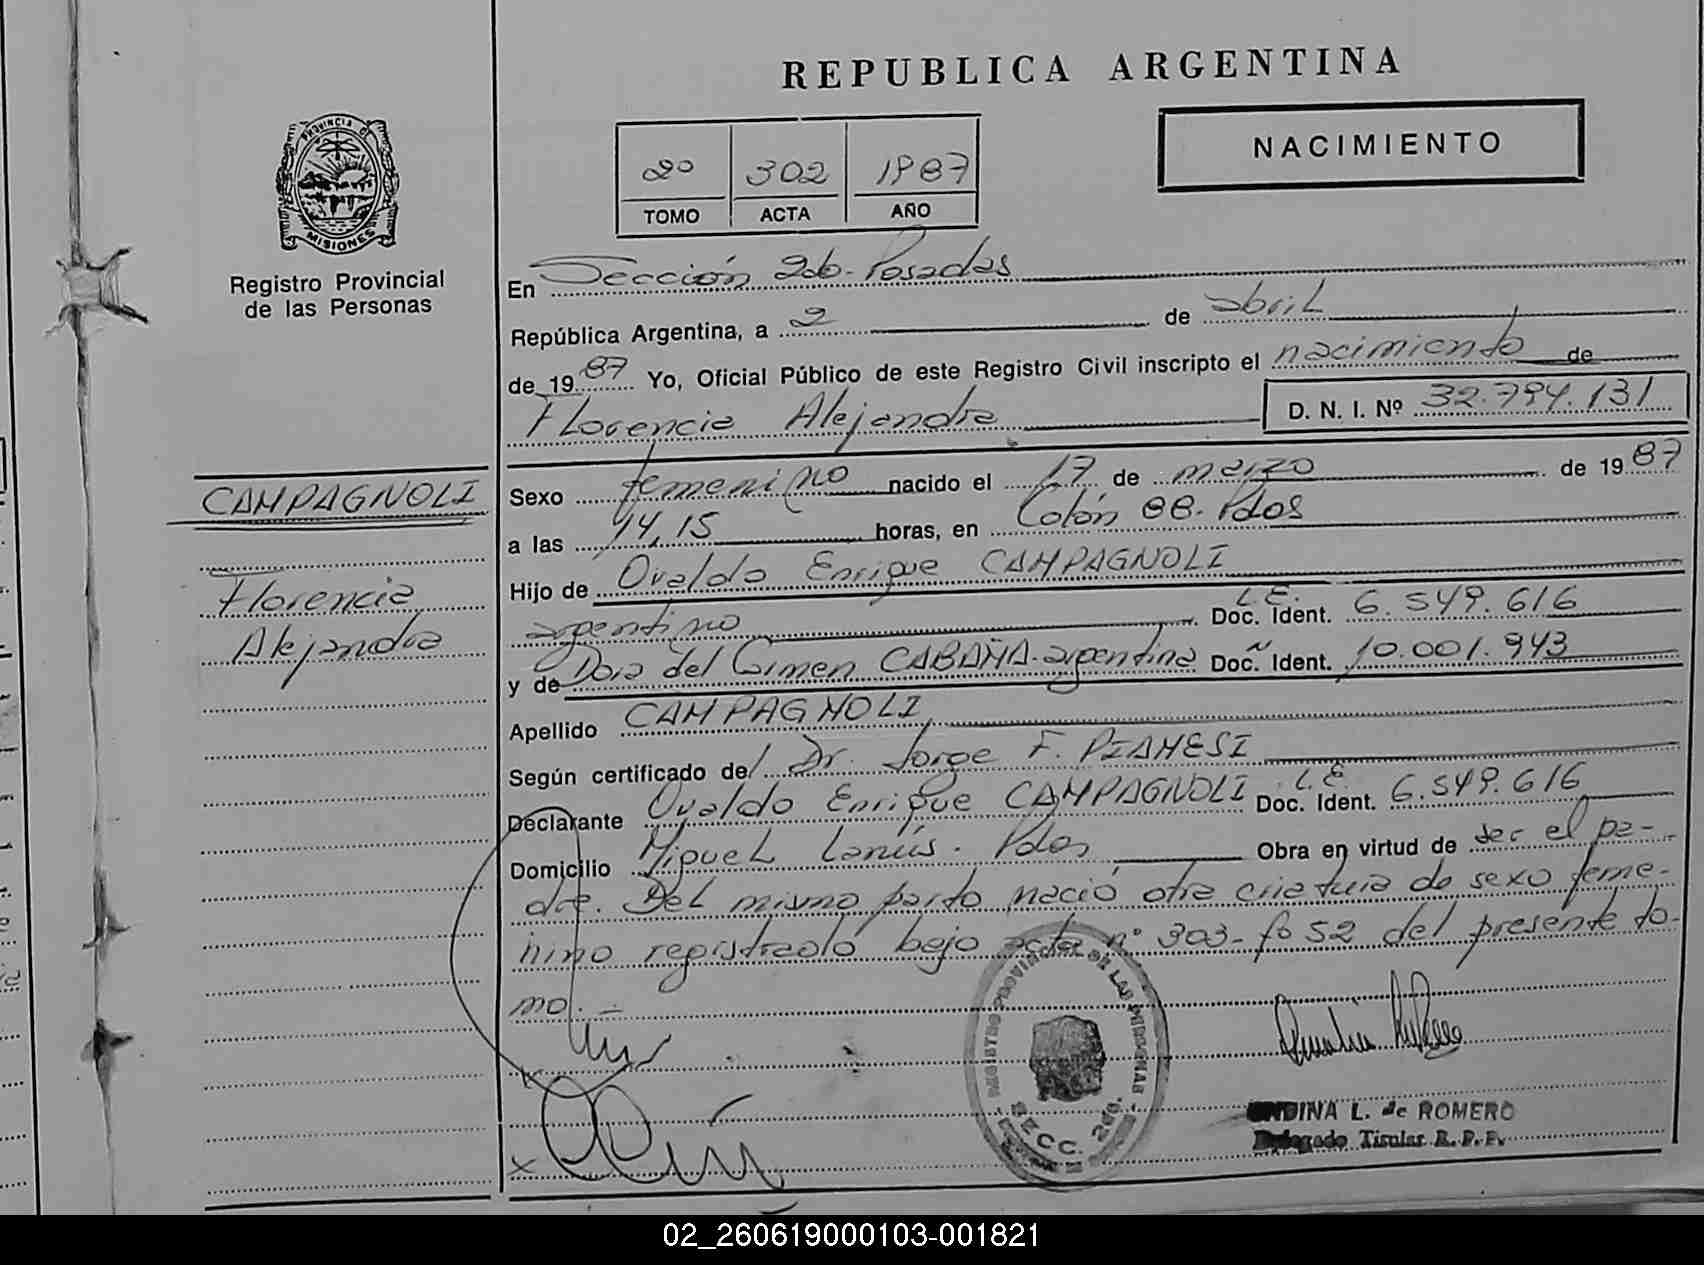 REPUBLICA ARGENTINA
NACIMIENTO
2º 302 1987
TOMO ACTA AÑO
PROVINCIA DE
MISIONES
Registro Provincial
de las Personas
CAMPAGNOLI
Florencia
Alejandra
En Sección 2da. Posadas
República Argentina, a 2 de abril
de 1987 Yo, Oficial Público de este Registro Civil inscripto el nacimiento de
Florencia Alejandra D. N. I. Nº 32.794.131
Sexo femenino nacido el 17 de marzo de 1987
a las 14,15 horas, en Colón 88. Pdas
Hijo de Ovaldo Enrique CAMPAGNOLI
argentino L.E. Doc. Ident. 6.549.616
y de Dora del Carmen CABAÑA. argentina Doc. Ident. 10.001.943
Apellido CAMPAGNOLI
Según certificado de/ Dr. Jorge F. PIAMESI
Declarante Ovaldo Enrique CAMPAGNOLI L.E. Doc. Ident. 6.549.616
Domicilio Miguel Lanús. Pdas Obra en virtud de ser el pa-
dre. Del mismo parto nació otra criatura de sexo feme-
nino registraolo bajo acta nº 303- fº 52 del presente to-
mo.
REGISTRO PROVINCIAL DE LAS PERSONAS
SECC. 2da.
L. de ROMERO
Delegado Titular R. P. P.
02_260619000103-001821